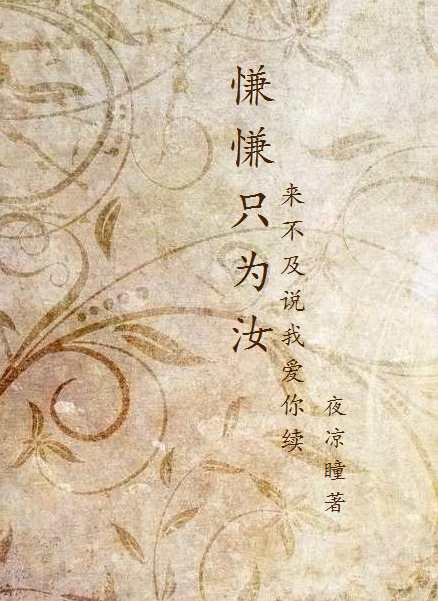 慊慊只为汝
来不及说我爱你续
夜凉瞳著